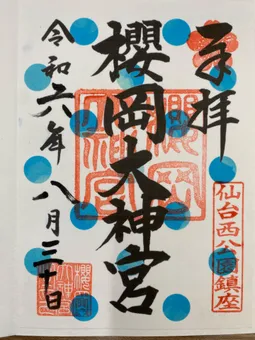 奉拝
仙台西公園鎮座
櫻岡大神宮
櫻岡
大神宮
令和六年八月三十日